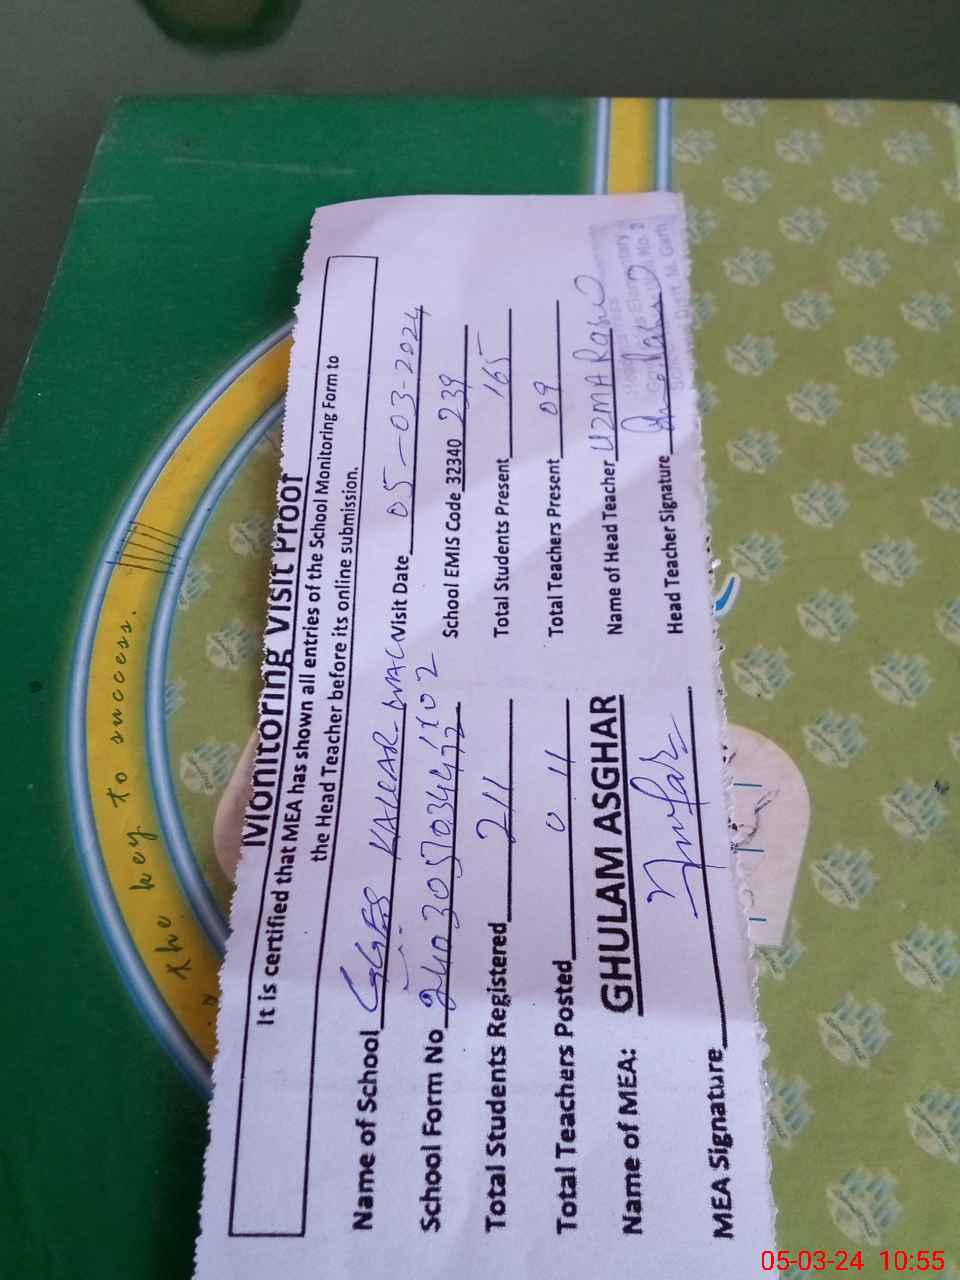 Monitoring Visit Proof
It is certified that MEA has shown all entries of the School Monitoring Form to
the Head Teacher before its online submission.
Name of School GGES KALLAR- Visit Date 05-03-2024
School Form No School EMIS Code 32340 239
Total Students Registered 211 Total Students Present 165
Total Teachers Posted 011 Total Teachers Present 09
Name of MEA: GHULAM ASGHAR Name of Head Teacher UZMA
MEA Signature Head Teacher Signature
the key to success.
05-03-24 10:55